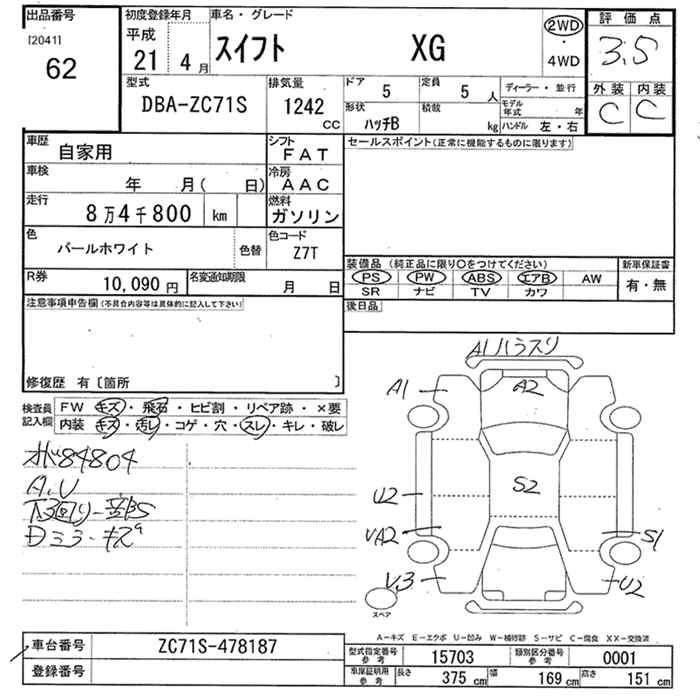 出品番号
[2041]
62
初度登録年月
平成
21 4 月
車名・グレード
スイフト XG
2WD
・
4WD
評価点
3.5
外装 内装
C C
型式
DBA-ZC71S
排気量
1242
CC
ドア
5
定員
5 人
形状
ハッチB
積載
kg
ディーラー・並行
モデル年式 年
ハンドル 左・右
車歴
自家用
シフト
FAT
車検
年 月( 日)
冷房
AAC
走行
8万4千800 km
燃料
ガソリン
色
パールホワイト
色替
色コード
Z7T
R券
10,090 円
名変通知期限
月 日
セールスポイント(正常に機能するものに限ります)
装備品 (純正品に限り〇をつけてください)
PS PW ABS エアB AW
SR ナビ TV カワ
新車保証書
有・無
後日品
注意事項申告欄(不具合内容等は具体的に記入して下さい)
修復歴 有〔箇所 〕
検査員
記入欄
FW キズ・飛石・ヒビ割・リペア跡・×要
内装 キズ・汚レ・コゲ・穴・スレ・キレ・破レ
84804
A.U
A1
A1
A2
S2
U2
VA2
V3
S1
U2
スペア
A-キズ E-エクボ U-凹み W-補修跡 S-サビ C-腐食 XX-交換済
車台番号
ZC71S-478187
登録番号
型式指定番号
参考
15703
類別区分番号
参考
0001
車庫証明用
参考
長さ 375 cm 幅 169 cm 高さ 151 cm